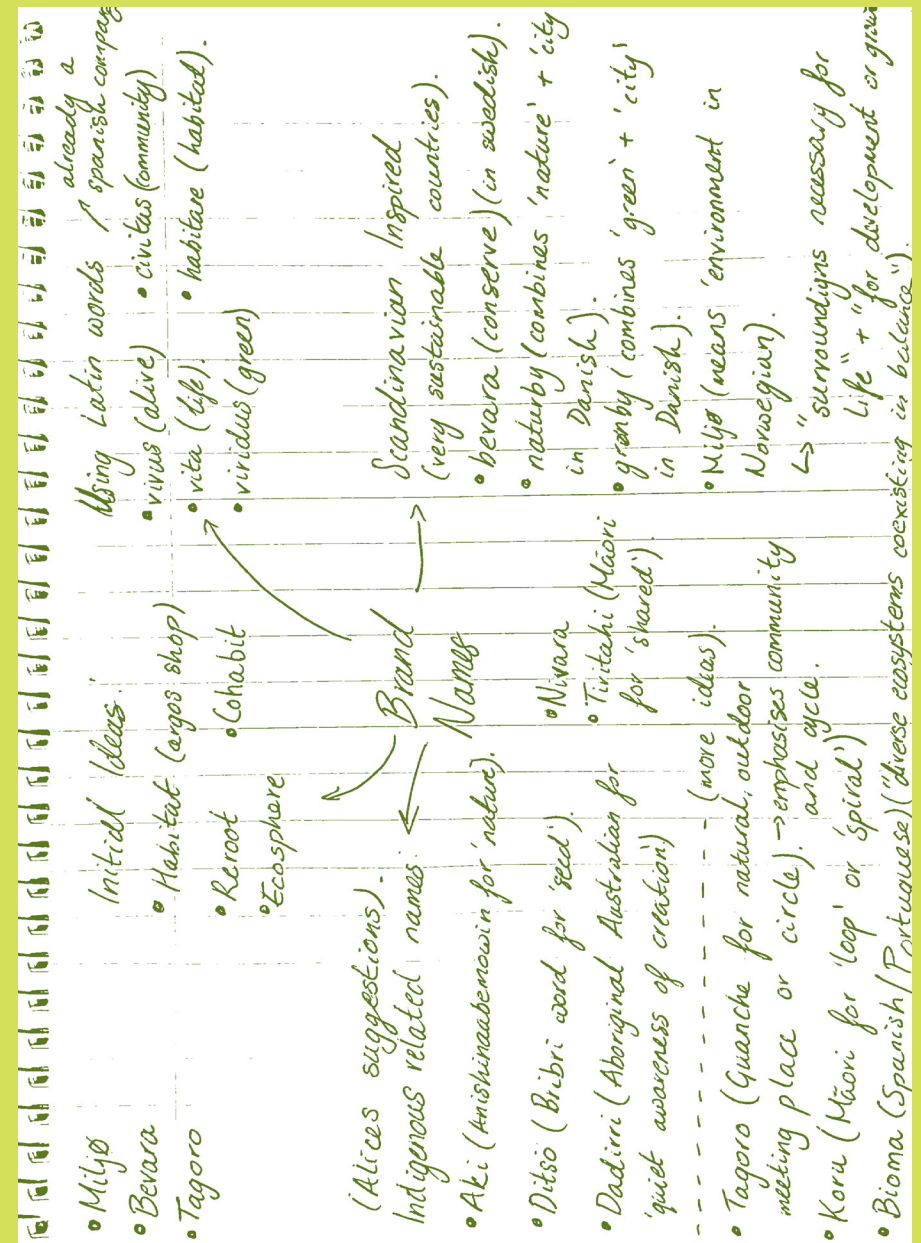 • Miljø
• Bevara
• Tagoro
Initial Ideas:
• Habitat (argos shop)
• Reroot
• Cohabit
• Ecosphere
Using Latin words
already a
spanish company
• vivus (alive)
• vita (life).
• viridus (green)
• civitas (community)
• habitare (habitat).
Brand
Names
Scandinavian Inspired
(very sustainable countries).
• bevara (conserve) (in swedish).
• naturby (combines 'nature' + 'city
in Danish).
• grønby (combines 'green' + 'city'
in Danish).
• Miljø (means 'environment in
Norwegian).
↳ "surroundigns necessary for
life" + "for development or
(Alices suggestions).
Indigenous related names:
• Aki (Anishinaabemowin for 'nature').
• Ditsö (Bribri word for 'seed').
• Dadirri (Aboriginal Australian for
'quiet awareness of creation)
• Nivara
• Tiritahi (Māori
for 'shared')
(more ideas).
• Tagoro (Guanche for natural, outdoor
meeting place or circle). → emphasises community
and cycle.
• Koru (Māori for 'loop' or 'spiral')
• Bioma (Spanish/Portuguese) ("diverse ecosystems coexisting in balance").